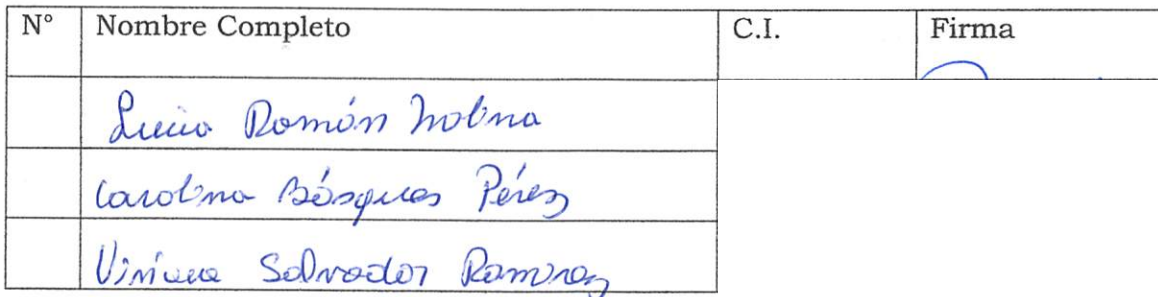 N° Nombre Completo C.I. Firma
Lucia Román Molina
Carolina Básques Pérez
Viviana Salvador Ramirez